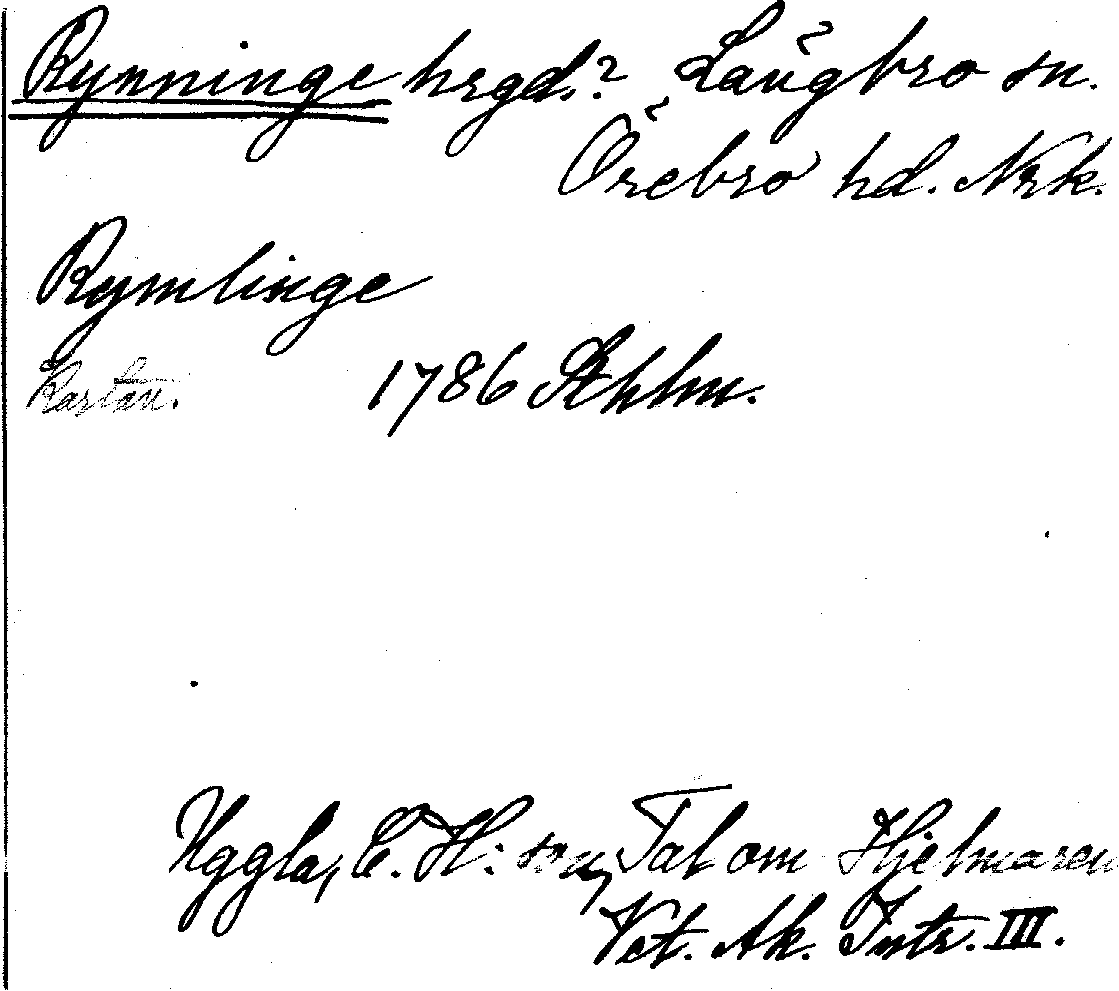 Rynninge hrgd.? Längbro sn.
Örebro hd. Nrk.
Rymlinge
Kartan. 1786 Sthlm.
Uggla, C. H:son, Tal om Hjelmaren
Vet. Ak. Intr. III.